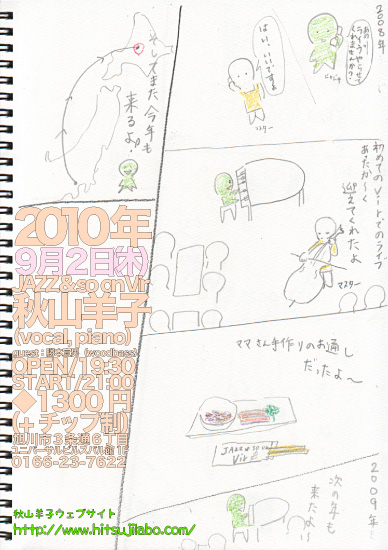 2008年
あのー
ライブやらせて
くれませんか?
はい、いいですよ
マスター
初めてのVirでのライブ
あたたか〜く
迎えてくれたよ
マスター
ママさん手作りのお通し
だったよ〜
JAZZ & so on
Vir
2009年
次の年も
来たよ!!
そしてまた今年も
来るよ!
2010年
9月2日(木)
JAZZ&so onVir
秋山羊子
(vocal, piano)
(woodbass)
OPEN/19:30
START/21:00
◆1300円
(+チップ制)
旭川市3条通6丁目
ユニバーサルビルスバル館 1F
0166-23-7622
秋山羊子ウェブサイト
http://www.hitsujilabo.com/